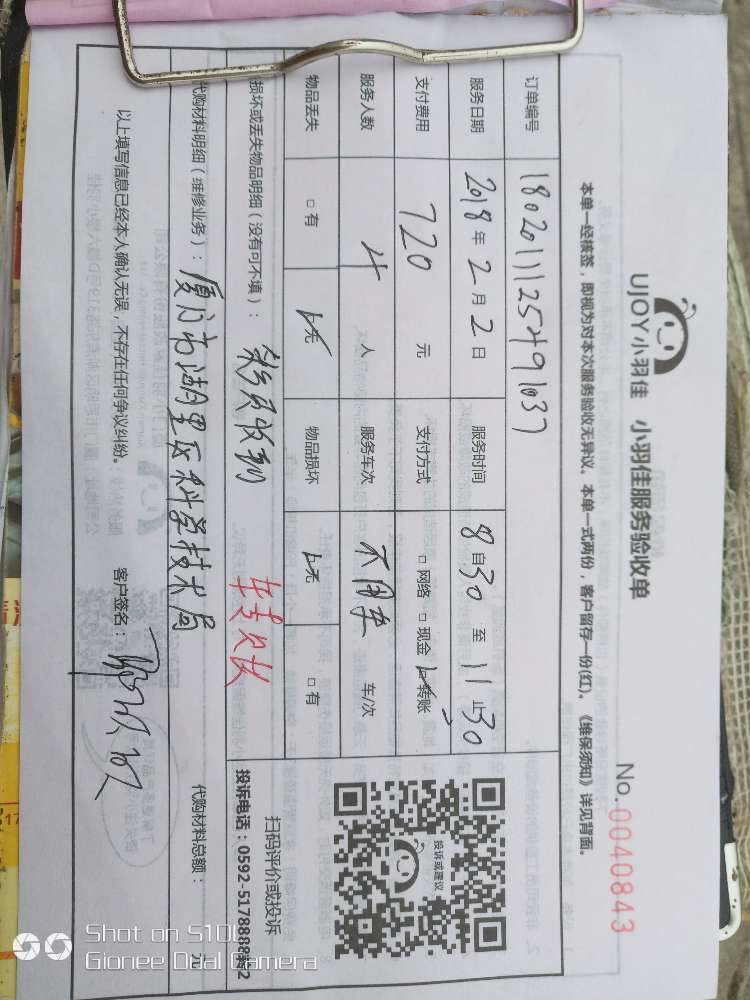 UJOY小羽佳 小羽佳服务验收单
No.0040843
本单一经核签，即视为对本次服务验收无异议。本单一式两份，客户留存一份(红)。《维保须知》详见背面。
订单编号 1802011125491037
服务日期 2018年2月2日 服务时间 8自30至11止30
支付费用 720元 支付方式 □网络 □现金 □转账
服务人数 4人 服务车次 不用车 车/次
物品丢失 □有 □无 物品损坏 □无 □有
损坏或丢失物品明细（没有可不填）：
代购材料明细（维修业务）：厦门市湖里区科学技术局
代购材料总额： 元
以上填写信息已经本人确认无误，不存在任何争议纠纷。 客户签名：
投诉或建议
扫码评价或投诉
投诉电话：0592-5178888转2
Shot on S10L
Gionee Dual Camera